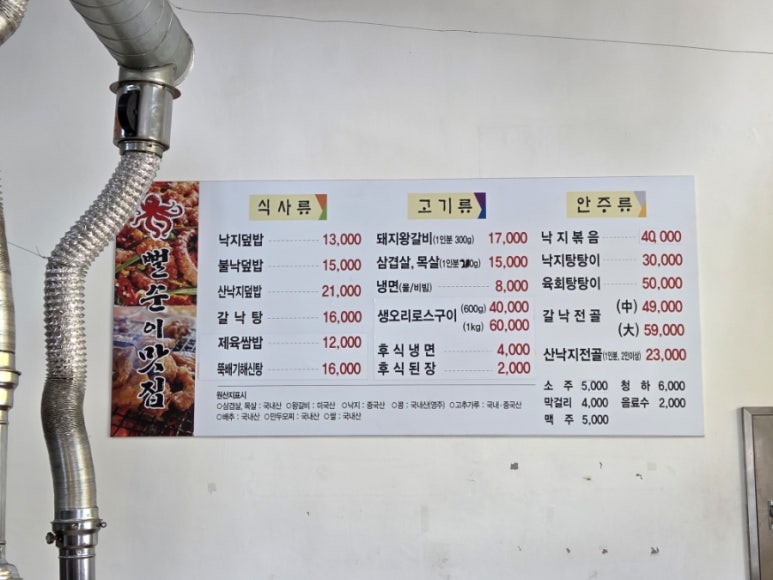 뻘순이맛집
식사류
낙지덮밥 13,000
불낙덮밥 15,000
산낙지덮밥 21,000
갈낙탕 16,000
제육쌈밥 12,000
뚝배기해신탕 16,000
고기류
돼지왕갈비(1인분 300g) 17,000
삼겹살, 목살(1인분 g) 15,000
냉면(물/비빔) 8,000
생오리로스구이 (600g) 40,000
(1kg) 60,000
후식냉면 4,000
후식된장 2,000
안주류
낙지볶음 40,000
낙지탕탕이 30,000
육회탕탕이 50,000
갈낙전골 (中) 49,000
(大) 59,000
산낙지전골(1인분, 2인이상) 23,000
소주 5,000 청하 6,000
막걸리 4,000 음료수 2,000
맥주 5,000
원산지표시
○삼겹살, 목살 : 국내산 ○왕갈비 : 미국산 ○낙지 : 중국산 ○콩 : 국내산(영주) ○고추가루 : 국내·중국산
○배추 : 국내산 ○만두모찌 : 국내산 ○쌀 : 국내산